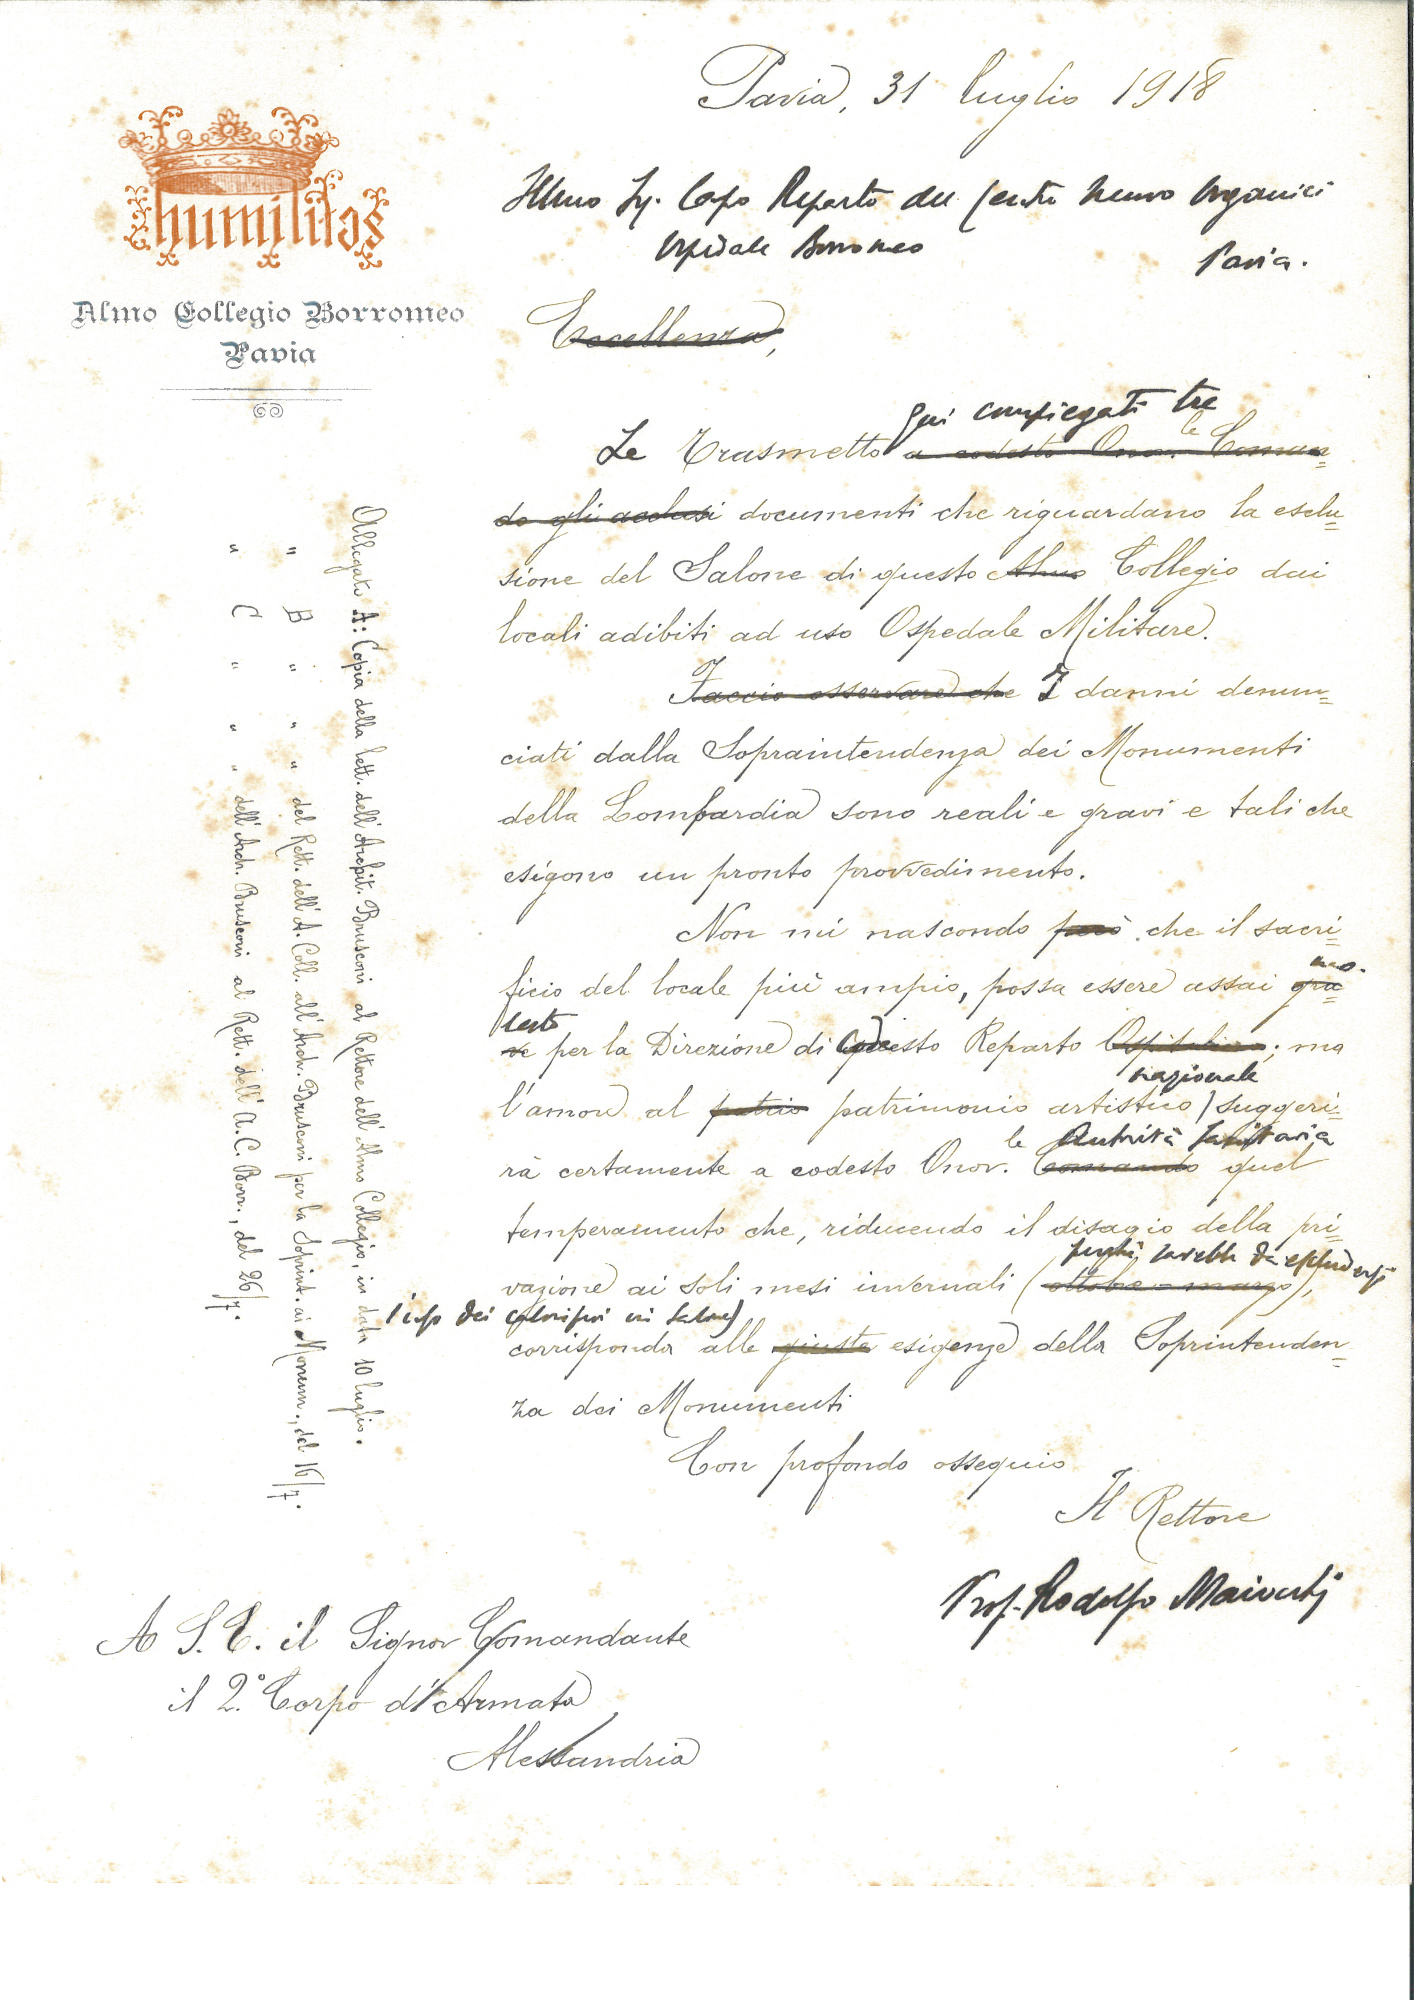 Pavia, 31 luglio 1918
humilitas
Almo Collegio Borromeo
Pavia
Illmo Sg. Capo Reparto del Centro Neuro Organici
Ospedale Borromeo
Pavia.
Eccellenza,
qui compiegati tre
Le Trasmetto a codesto Onor. le Coman=
do gli acclusi documenti che riguardano la esclu=
sione del Salone di questo Almo Collegio dai
locali adibiti ad uso Ospedale Militare.
Faccio osservare che I danni denun=
ciati dalla Sopraintendenza dei Monumenti
della Lombardia sono reali e gravi e tali che
esigono un pronto provvedimento.
Non mi nascondo però che il sacri=
ficio del locale più ampio, possa essere assai gra=
mo.
lesto
ve per la Direzione di codesto Reparto Ospitaliero; ma
nazionale
l'amore al patrio patrimonio artistico suggeri=
le Autorità Sanitaria
rà certamente a codesto Onor. Comando quel
temperamento che, riducendo il disagio della pri=
perchè sarebbe da escludersi
vazione ai soli mesi invernali (ottobre - marzo),
l'uso dei caloriferi in Salone)
corrisponda alle giuste esigenze della Soprintenden=
za dei Monumenti
Con profondo ossequio
Il Rettore
Prof. Rodolfo Maiocchi
A S. E. il Signor Comandante
il 2.° Corpo d'Armata
Alessandria
Allegato A: Copia della lett. dell'Archit. Brusconi al Rettore dell'Almo Collegio, in data 10 luglio.
" B " " " del Rett. dell'A. Coll. all'Arch. Brusconi per la Soprint. ai Monum., del 16/7.
" C " " " dell'Arch. Brusconi al Rett. dell'A. C. Borr., del 26/7.